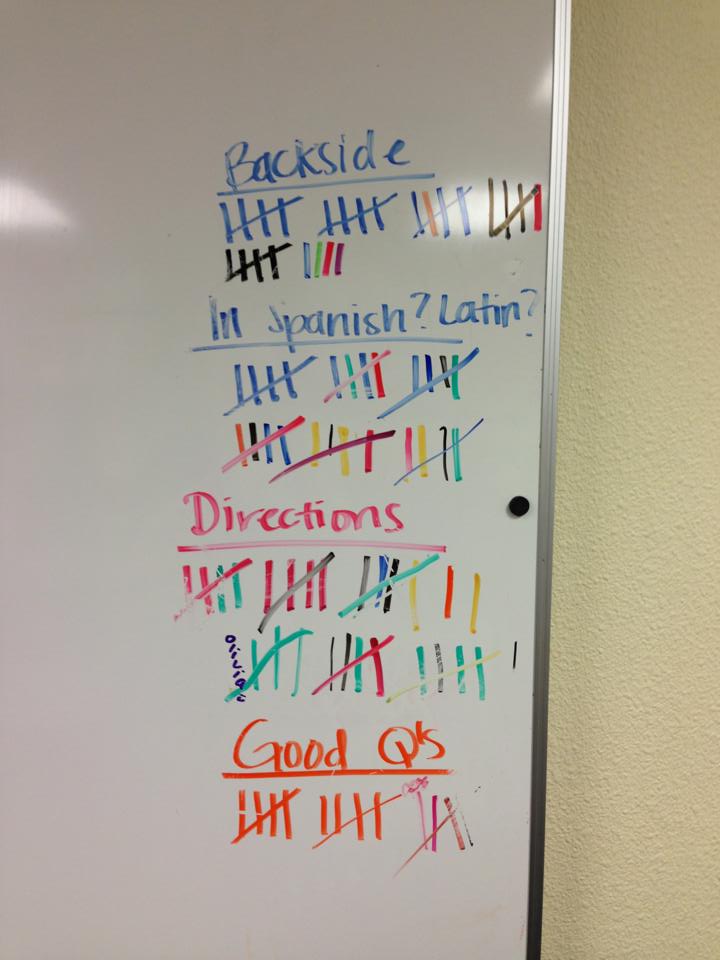 Backside
In Spanish? Latin?
Directions
Good Q's